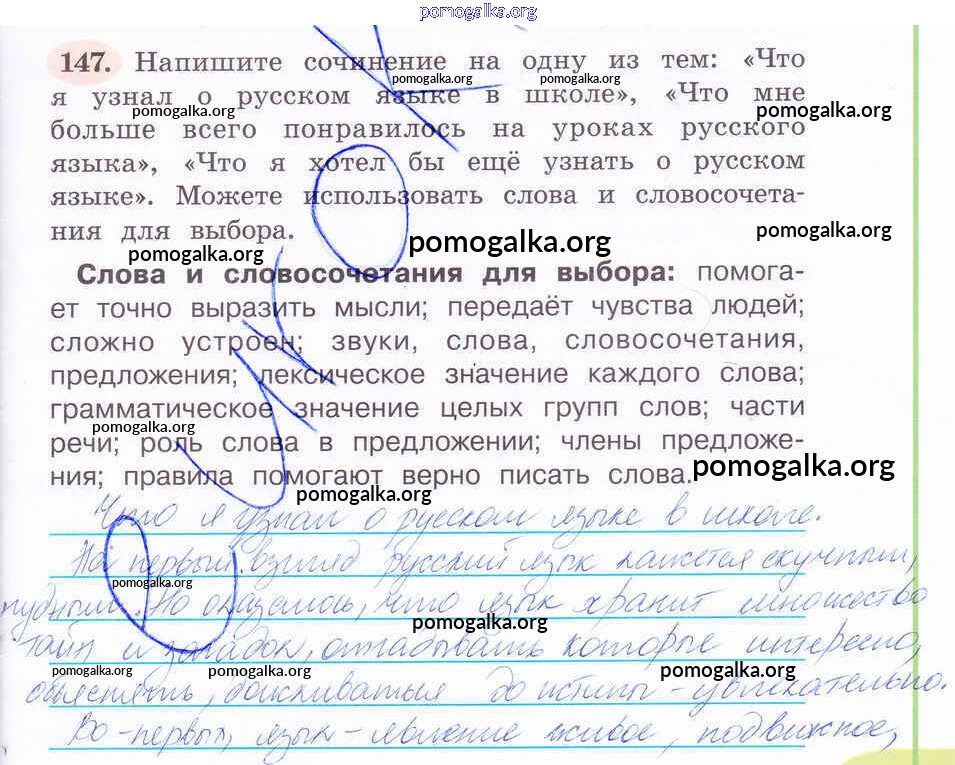 pomogalka.org
147. Напишите сочинение на одну из тем: «Что
pomogalka.org
я узнал о русском языке в школе», «Что мне
pomogalka.org pomogalka.org
больше всего понравилось на уроках русского
языка», «Что я хотел бы ещё узнать о русском
языке». Можете использовать слова и словосочета-
ния для выбора.
pomogalka.org
pomogalka.org pomogalka.org
Слова и словосочетания для выбора: помога-
ет точно выразить мысли; передаёт чувства людей;
сложно устроен; звуки, слова, словосочетания,
предложения; лексическое значение каждого слова;
грамматическое значение целых групп слов; части
pomogalka.org
речи; роль слова в предложении; члены предложе-
ния; правила помогают верно писать слова.
pomogalka.org
pomogalka.org
Что я узнал о русском языке в школе.
На первый взгляд русский язык кажется скучным,
pomogalka.org
нудным. Но оказалось, что язык хранит множество
pomogalka.org
тайн и загадок, отгадывать которые интересно,
pomogalka.org pomogalka.org
объяснять, доискиваться до истины - увлекательно.
Во-первых, язык - явление живое, подвижное,